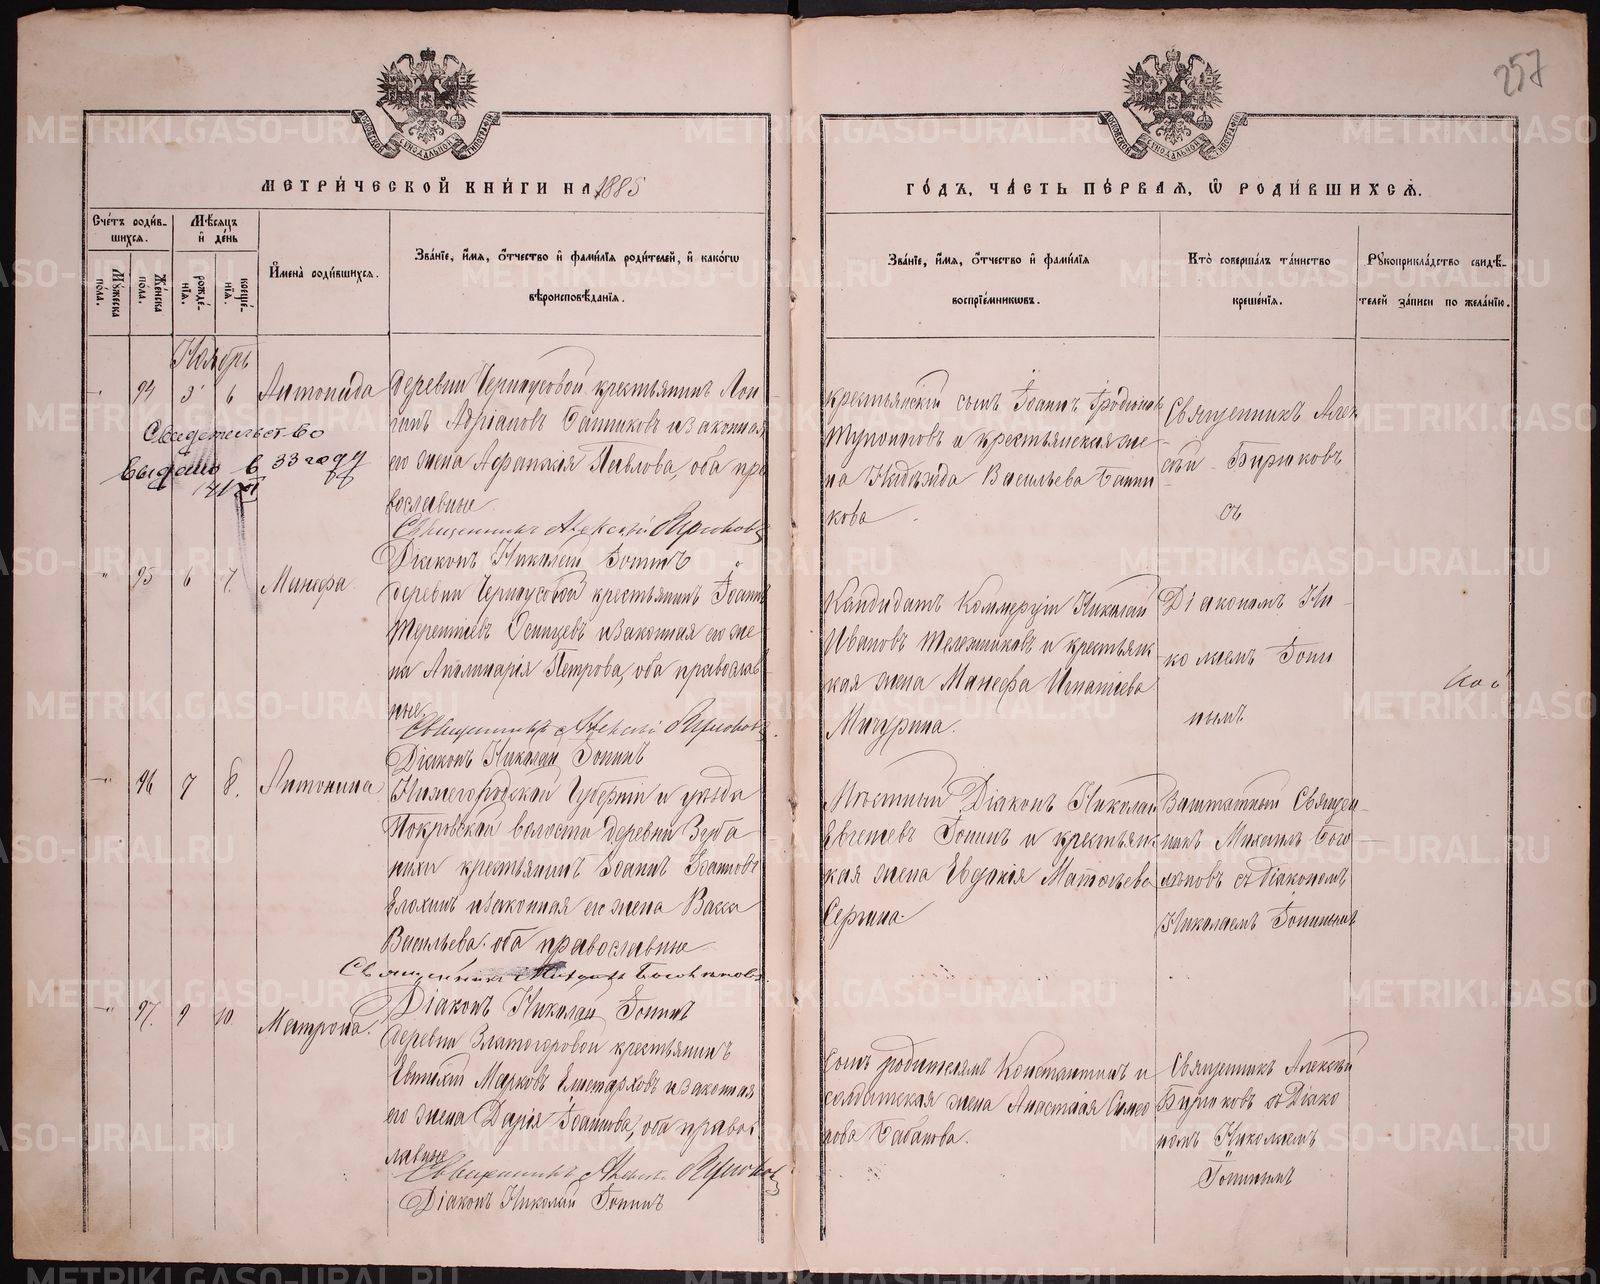 257
МЕТРИ́ЧЕСКОЙ КНИ́ГИ НА 1885
ГО́ДЪ, ЧА́СТЬ ПЕ́РВАЯ, Ѡ РОДИ́ВШИХСЯ.
Сче́тъ роди́в-
шихся.
Мѣ́сяцъ
и де́нь
Му́жеска
по́ла.
Же́нска
по́ла.
рожде́-
нїя.
креще́-
нїя.
Имена̀ роди́вшихся.
Зва́нїе, и́мя, о́тчество и фами́лїя роди́телей, и како́гѡ
вѣроисповѣ́данїя.
Зва́нїе, и́мя, о́тчество и фами́лїя
воспрїе́мникѡвъ.
Кто̀ соверша́лъ та́инство
креще́нїя.
Рукоприкла́дство свидѣ́-
телей за́писи по жела́нїю.
Ноябрь
94 3 6 Антонида
деревни Черноусовой крестьянинъ Лон
гинъ Адріановъ Банниковъ и законная
его жена Афанасія Павлова, оба пра
вославные
Священникъ Алексѣй Бирюковъ
Діаконъ Николай Іонинъ
крестьянскій сынъ Іоаннъ Іродіоновъ
и крестьянская же-
на Надежда Васильева Банни
кова
Священникъ Алек
сѣй Бирюковъ
съ
Свидетельство
выдано в 33 году
95 6 7. Манефа
деревни Черноусовой крестьянинъ Іоаннъ
Терентіевъ Осинцевъ и законная его же
на Аполинарія Петрова, оба православ
ные
Священникъ Алексій Бирюковъ
Діаконъ Николай Іонинъ
Кандидатъ Коммерціи Николай
Ивановъ Тележниковъ и крестьянс
кая жена Манефа Игнатіева
Мичурина.
Діакономъ Ни-
колаемъ Іони
нымъ
96 7 8. Антонина
Нижегородской Губерніи и уѣзда
Покровской волости деревни Зуба
нихи крестьянинъ Іоаннъ Іоанновъ
Елохинъ и законная его жена Васса
Васильева оба православные
Священникъ Михаилъ Боголѣповъ
Діаконъ Николай Іонинъ
Мѣстный Діаконъ Николай
Евгеніевъ Іонинъ и крестьянс
кая жена Евдокія Матѳеева
Сергина.
Заштатный Священ-
никъ Михаилъ Бого-
лѣповъ съ діакономъ
Николаемъ Іонинымъ
97. 9 10 Матрона.
деревни Златогоровой крестьянинъ
Евтихій Марковъ Елистарховъ и законная
его жена Дарія Іоаннова, оба правос
лавные
Священникъ Алексій Бирюковъ
Діаконъ Николай Іонинъ
Сынъ родителямъ Константинъ и
солдатская жена Анастасія Симео
нова Бабанова.
Священникъ Алексѣй
Бирюковъ съ Діако
номъ Николаемъ
Іонинымъ
METRIKI.GASO-URAL.RU